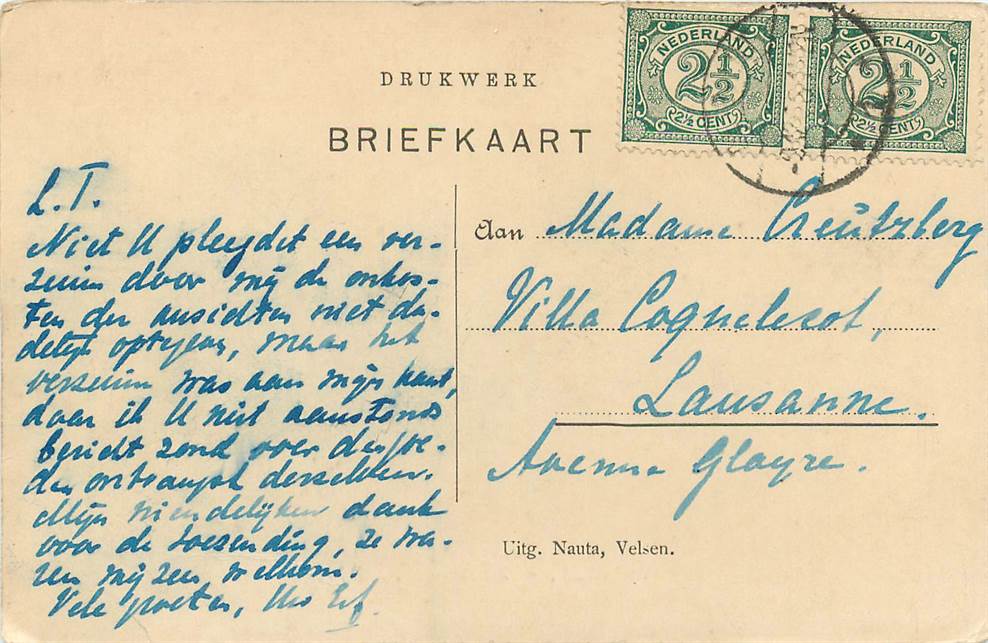 DRUKWERK
BRIEFKAART
NEDERLAND
2½
2½ CENT
NEDERLAND
2½
2½ CENT
L.T.
Niet U pleegdet een ver-
zuim door mij de onkos-
ten der ansichten niet da-
delijk optegeven, maar het
verzuim was aan mijn kant,
daar ik U niet aanstonds
bericht zond over de goe-
den ontvangst derzelven.
Mijn vriendelijken dank
voor de toezending, ze wa-
ren mij zeer welkom.
Vele groeten, Uw
Aan Madame Creutzberg
Villa Coquelicot,
Lausanne.
Avenue Glayre.
Uitg. Nauta, Velsen.